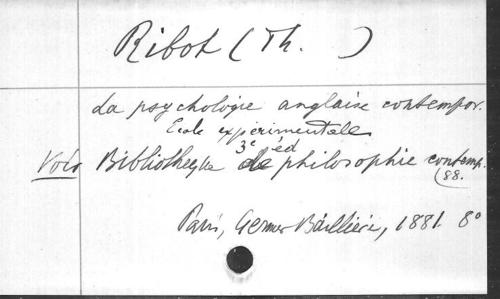 Ribot (Th. )
La psychologie anglaise contempor.
Ecole expérimentale
3e éd
Bibliotheque de philosophie contemp.
88.
Paris, Germer-Baillière, 1881. 8°